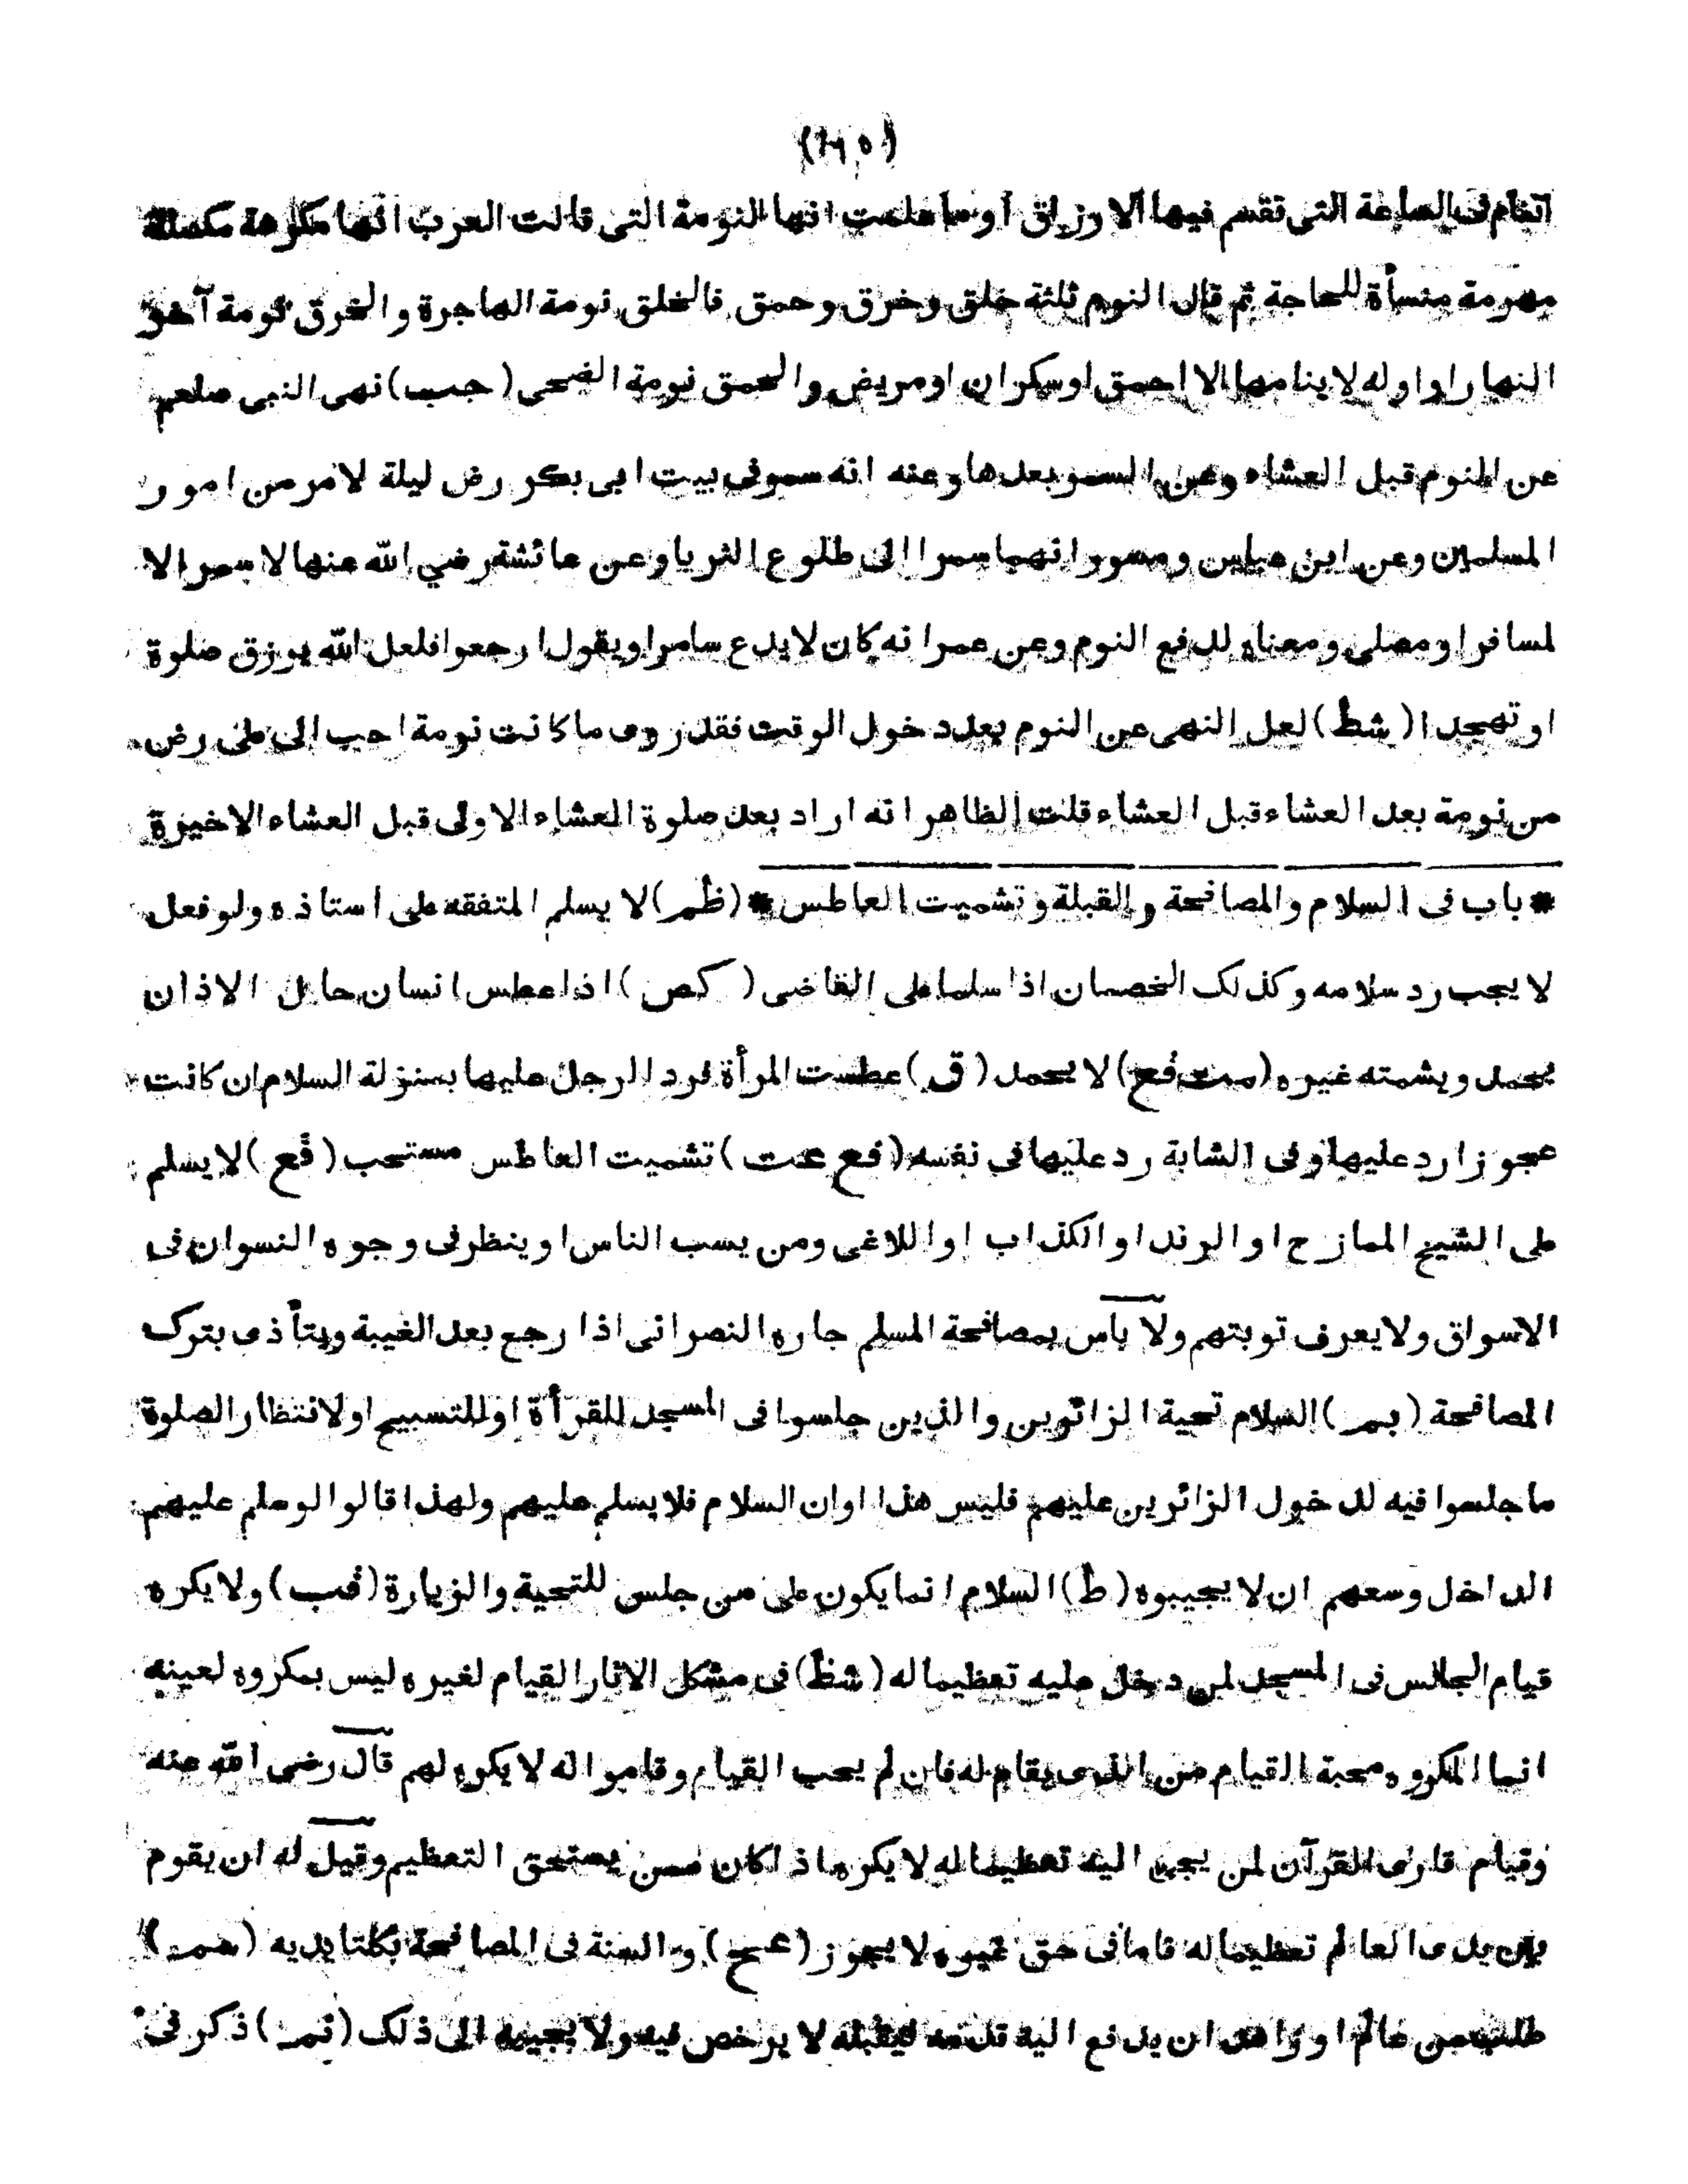 (١٦٥)
اتنام فى الساعة التى تقسم فيها الارزاق أوما علمت انها النومة التى قالت العرب انها مكرهة مكسلة
مهرمة منسأة للحاجة ثم قال النوم ثلثة خلق وخرق وحمق فالخلق نومة الهاجرة والخرق نومة آخر
النهار او اوله لا ينامها الا احمق اوسكران اومريض والحمق نومة الضحى (جب) نهى النبى صلعم
عن النوم قبل العشاء وعن السمر بعدها وعنه انه سمر فى بيت ابى بكر رض ليلة لامر من امور
المسلمين وعن ابن عباس ومسور انهما سمرا الى طلوع الثريا وعن عائشة رضي الله عنها لا سمر الا
لمسافر او مصلى ومعناه لدفع النوم وعن عمر انه كان لا يدع سامرا ويقول ارجعوا فلعل الله يرزق صلوة
او تهجدا (شط) لعل النهى عن النوم بعد دخول الوقت فقد روى ما كانت نومة احب الى على رض
من نومة بعد العشاء قبل العشاء قلت الظاهر انه اراد بعد صلوة العشاء الاولى قبل العشاء الاخيرة
* باب فى السلام والمصافحة والقبلة وتشميت العاطس * (ظم) لا يسلم المتفقه على استاذه ولو فعل
لا يجب رد سلامه وكذلك الخصمان اذا سلما على القاضى (كص) اذا عطس انسان حال الاذان
يحمد ويشمته غيره (ست فع) لا يحمد (ق) عطست المرأة فرد الرجل عليها بمنزلة السلام ان كانت
عجوزا رد عليها وفى الشابة رد عليها فى نفسه (فع عت) تشميت العاطس مستحب (قع) لا يسلم
على الشيخ الممازح او الرند او الكذاب او اللاغى ومن يسب الناس او ينظر فى وجوه النسوان فى
الاسواق ولا يعرف توبتهم ولا بأس بمصافحة المسلم جاره النصرانى اذا رجع بعد الغيبة ويتأذى بترك
المصافحة (بم) السلام تحية الزائرين والذين جلسوا فى المسجد للقرأة او للتسبيح او لانتظار الصلوة
ما جلسوا فيه لدخول الزائرين عليهم فليس هذا اوان السلام فلا يسلم عليهم ولهذا قالوا لو سلم عليهم
الداخل وسعهم ان لا يجيبوه (ط) السلام انما يكون على من جلس للتحية والزيارة (قب) ولا يكره
قيام الجالس فى المسجد لمن دخل عليه تعظيما له (شظ) فى مشكل الاثار القيام لغيره ليس بمكروه لعينه
انما المكروه محبة القيام من الذى يقام له فان لم يحب القيام وقاموا له لا يكره لهم قال رضى الله عنه
وقيام قارى القرآن لمن يجىء اليه تعظيما له لا يكره اذا كان ممن يستحق التعظيم وقيل له ان يقوم
بين يدى العالم تعظيما له فاما فى حق غيره لا يجوز (عح) والسنة فى المصافحة بكلتا يديه
طلب من عالم او زاهد ان يدفع اليه قدمه ليقبله لا يرخص فيه ولا يجيبه الى ذلك ذكر فى